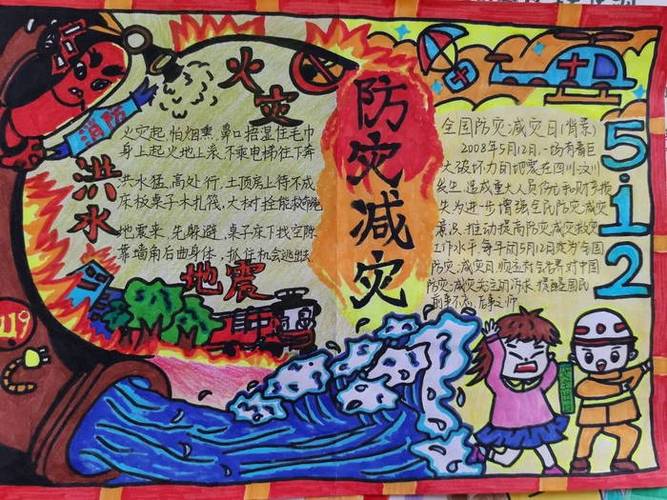 防灾减灾
火灾
消防
火灾起 怕烟熏 鼻口捂湿住毛巾
身上起火地上滚 不乘电梯往下奔
洪水
洪水猛 高处行 土顶房上待不成
床板桌子木扎筏 大树拴能救命
地震来 先躲避 桌子床下找空隙
靠墙角后曲身体 抓住机会逃出去
地震
119
全国防灾减灾日(背景)
2008年5月12日,一场有着巨
大破坏力的地震在四川汶川
发生 造成重大人员伤亡和财产损
失 为进一步增强全民防灾减灾
意识 推动提高防灾减灾救灾
工作水平 每年的5月12日定为全国
防灾减灾日
防灾减灾关注的
5·12